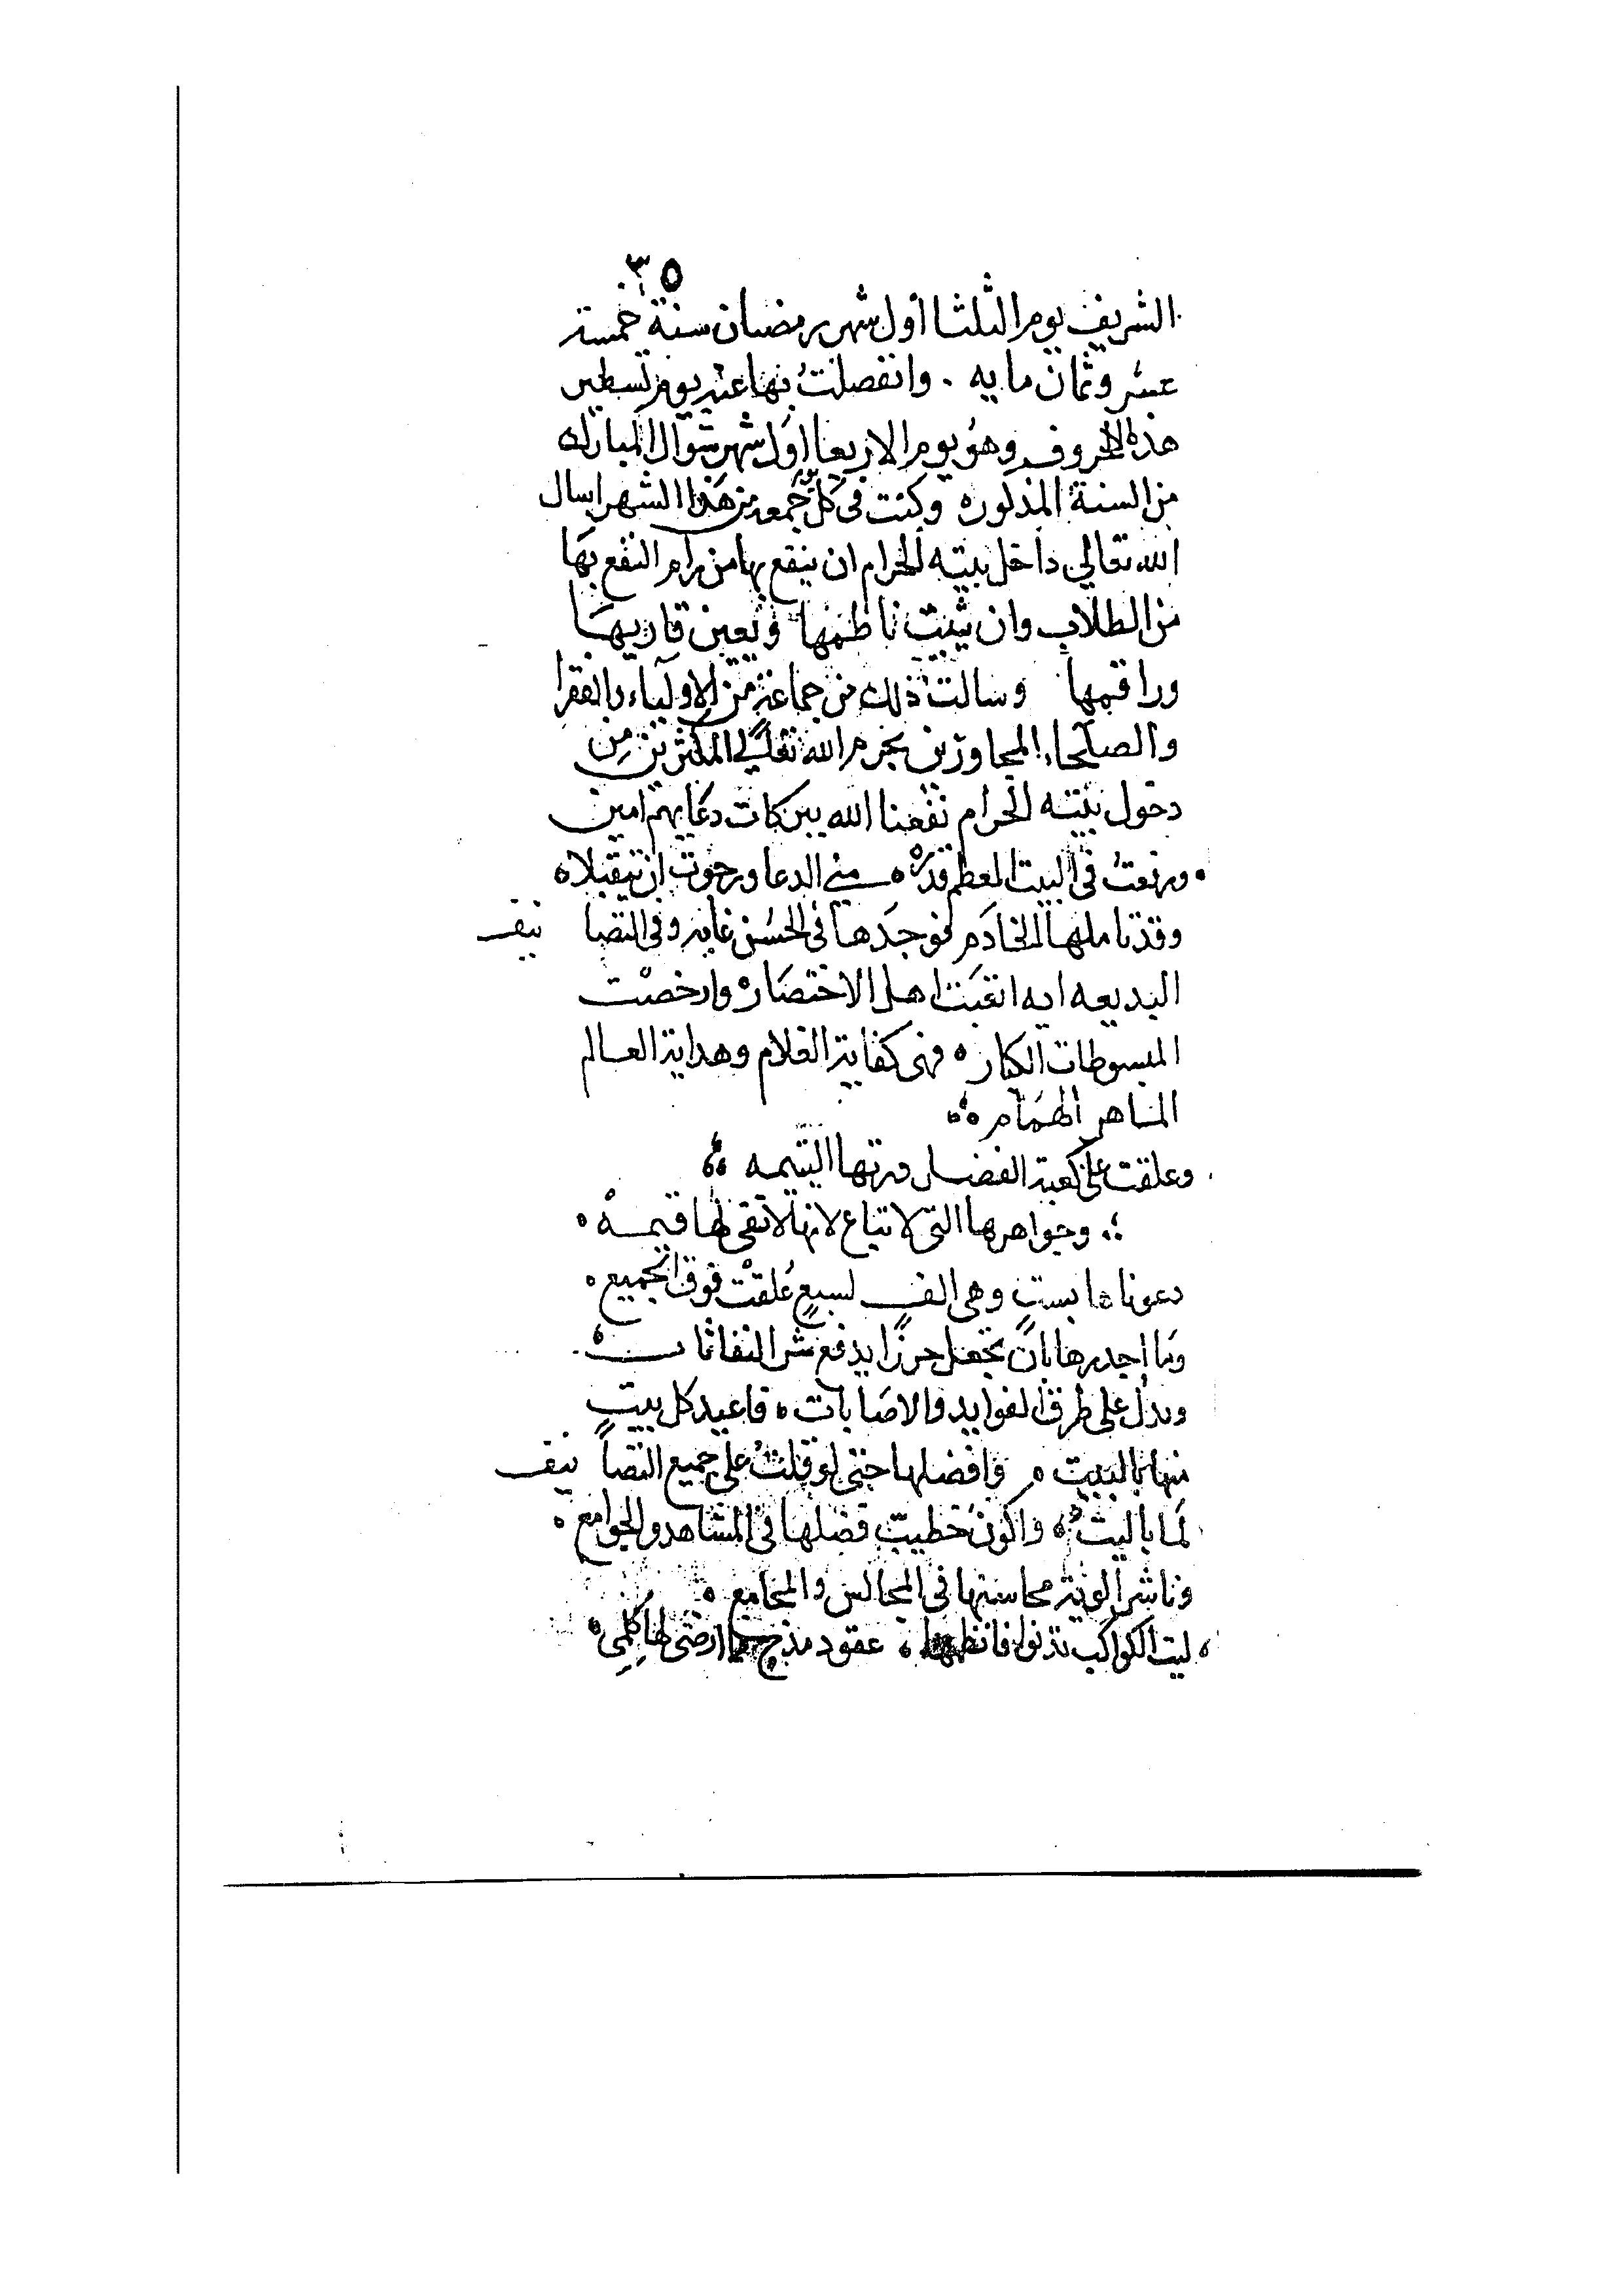 ٣٥
الشريف يوم الثلثا أول شهر رمضان سنة خمسة
عشر وثمان مايه . وانفصلت بها عند يوم تسطير
هذه الاحروف وهو يوم الاربعا اول شهر شوال المبارك
من السنة المذكوره وكنت في كل يوم جمعه من هذا الشهر اسال
الله تعالي داخل بيته الحرام ان ينفع بها من رام النفع بها
من الطلاب وان يثيبت ناظمها ويعين قاريها
وراقمها وسالت ذلك من جماعة من الاولياء بالفقرا
والصلحاء المجاورين بحرم الله تعالي المكثرين من
دخول بيته الحرام نفعنا الله ببركات دعايهم امين
ورفعت في البيت المعظم قدره مني الدعا ورجوت ان يتقبلاه
وقد تاملها الخادم فوجدها في الحسن غايه وفي التصا نيف
البديعه ايه اتعبت اهل الاختصاره وارخصت
المبسوطات الكباره فهي كفاية الغلام وهداية العالم
الماهر الهمام
وعلقت على كعبة الفضل درتها اليتيمه
وجواهرها التي لا تباع لانها لا تقى لها قيمه
دعونا ما بست وهي الف لسبع علقت فوق الجميع
وما اجدرها بان تجعل حرزا يدفع شر النفاثات
ويدل على طرق الفوايد والاصابات فاعيد كل بيت
منها بالبيت وافضلها حتى لو قلت على جميع التصا نيف
لما باليت واكون خطيب فضلها في المشاهد والجوامع
وناشر الوية محاسنها في المجالس والمجامع
ليت الكواكب تدنوا فانظمها عقود مدح فما ارضى لها كلمي